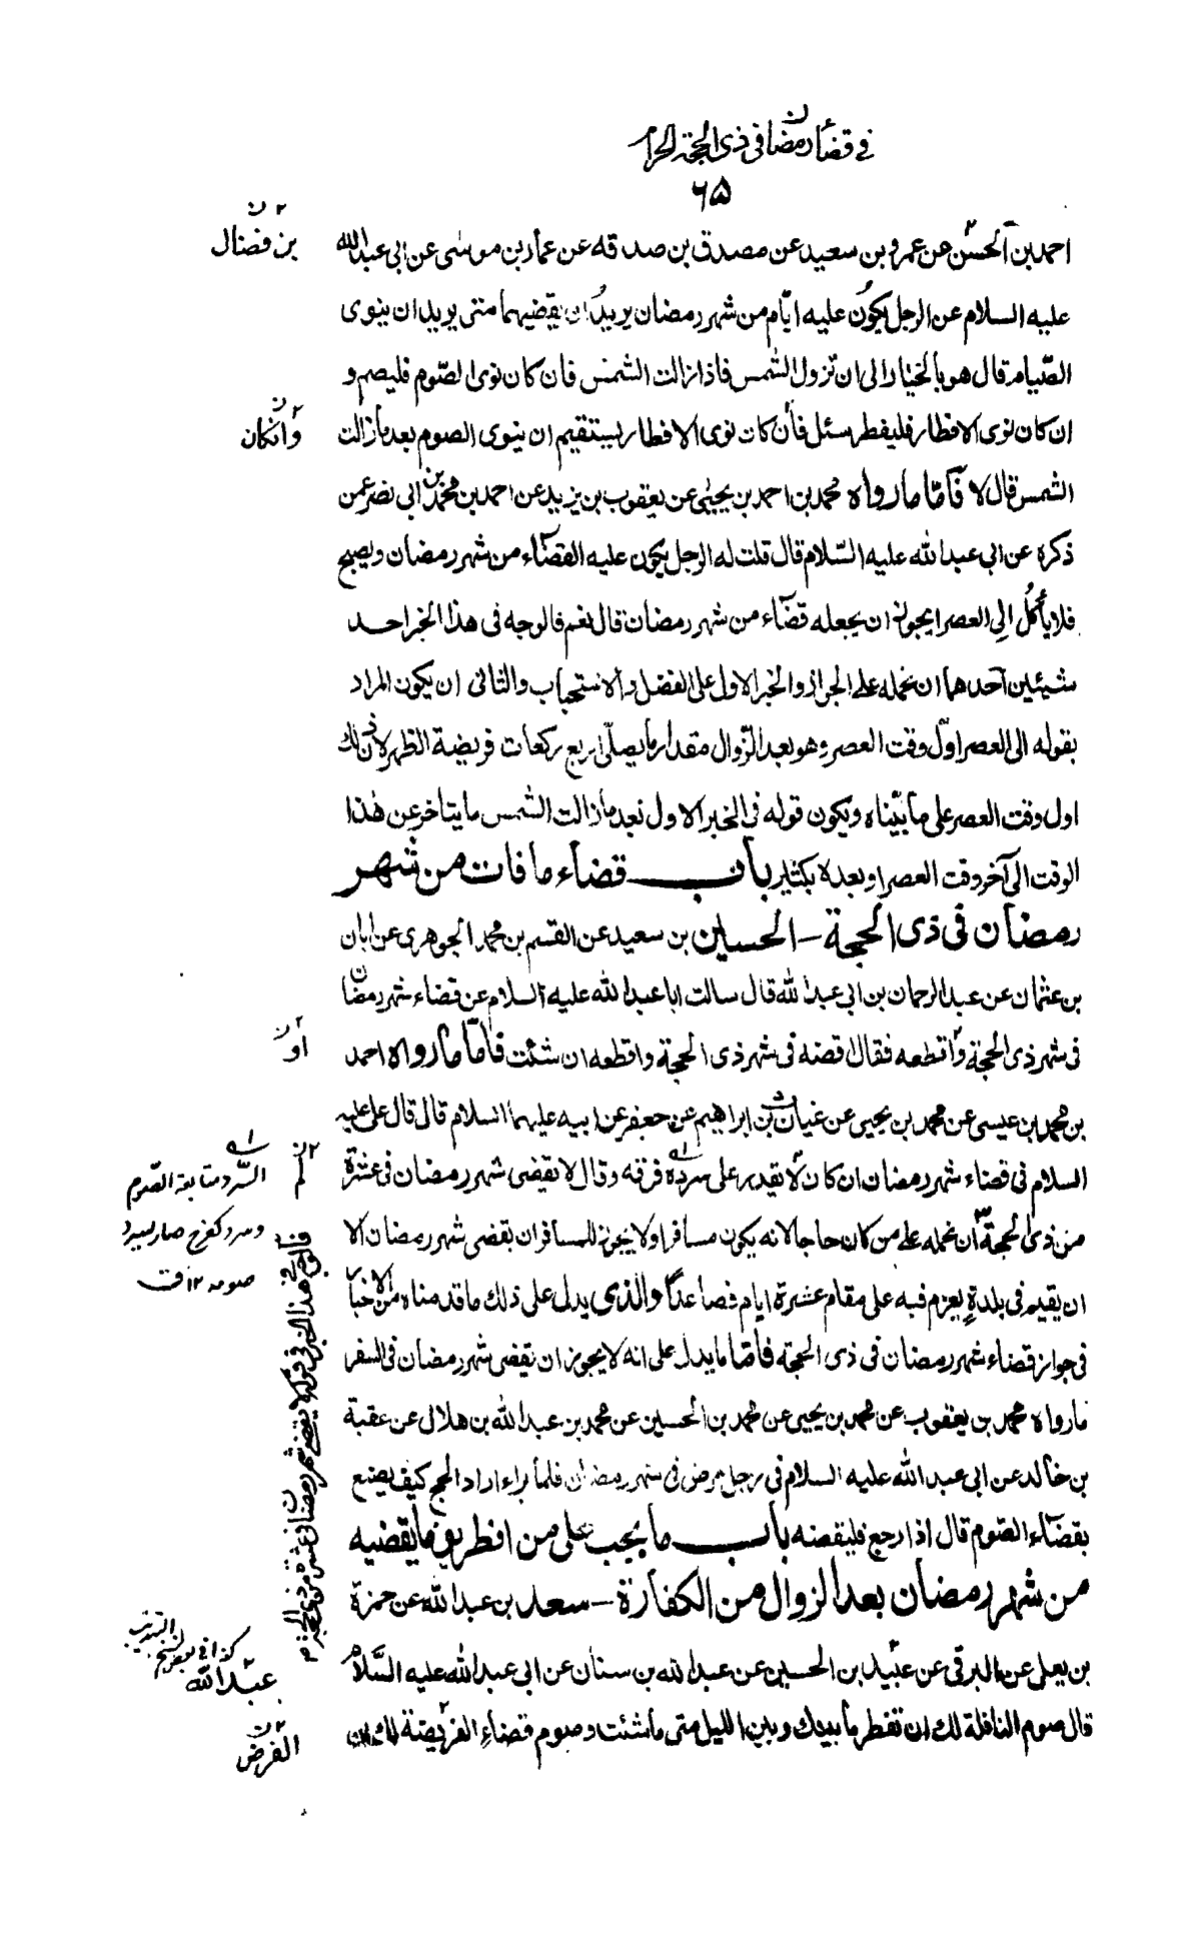 في قضاء رمضان في ذي الحجة الحرام
٦٥
احمد بن الحسن عن عمرو بن سعيد عن مصدق بن صدقه عن عمار بن موسى عن ابى عبدالله
بن فضال
عليه السلام عن الرجل يكون عليه ايّام من شهر رمضان يريد ان يقضيهما متى يريد ان ينوى
الصّيام قال هو بالخيار الى ان تزول الشمس فاذا زالت الشمس فان كان نوى الصّوم فليصم و
ان كان نوى الافطار فليفطر سئل فان كان نوى الافطار يستقيم ان ينوى الصوم بعد ما زالت
وانكان
الشمس قال لا فامّا ما رواه محمد بن احمد بن يحيى عن يعقوب بن يزيد عن احمد بن محمد بن ابى نصر عمن
ذكره عن ابى عبد الله عليه السّلام قال قلت له الرجل يكون عليه القضاء من شهر رمضان ويصبح
فلا يأكل الى العصر ايجوز ان يجعله قضاء من شهر رمضان قال نعم فالوجه فى هذا الخبر احد
شيئين احدهما ان نحمله على الجواز والخبر الاول على الفضل والاستحباب والثانى ان يكون المراد
بقوله الى العصر اوّل وقت العصر وهو بعد الزّوال مقدار ما يصلّى اربع ركعات فريضة الظهر لان ذلك
اول وقت العصر على ما بيّناه ويكون قوله فى الخبر الاول بعد ما زالت الشمس ما يتاخر عن هذا
الوقت الى آخر وقت العصر او بعده بكثير باب قضاء ما فات من شهر
رمضان فى ذى الحجة - الحسين بن سعيد عن القسم بن محمد الجوهرى عن ابان
بن عثمان عن عبد الرحمان بن ابى عبد الله قال سالت ابا عبد الله عليه السلام عن قضاء شهر رمضان
فى شهر ذى الحجة واقطعه فقال اقضه فى شهر ذى الحجة واقطعه ان شئت فامّا ما رواه احمد
او
بن محمد بن عيسى عن محمد بن يحيى عن غياث بن ابراهيم عن جعفر عن ابيه عليهما السلام قال قال على عليه
السلام فى قضاء شهر رمضان ان كان لا يقدر على سرده فرقه وقال لا تقضى شهر رمضان فى عشرة
من ذى الحجة ان نحمله على من كان حاجا لانه يكون مسافرا ولا يجوز للمسافر ان يقضى شهر رمضان الا
ان يقيم فى بلدة يعزم فيه على مقام عشرة ايام فصاعدًا والذى يدل على ذلك ما قدمناه من الاخبار
فى جواز قضاء شهر رمضان فى ذى الحجة فامّا ما يدل على انه لا يجوز ان تقضى شهر رمضان فى السفر
ما رواه محمد بن يعقوب عن محمد بن يحيى عن محمد بن الحسين عن محمد بن عبد الله بن هلال عن عقبة
بن خالد عن ابى عبد الله عليه السلام فى رجل مرض فى شهر رمضان فلما براء اراد الحج كيف يصنع
بقضاء الصّوم قال اذا رجع فليقضه باب ما يجب على من افطر يوما يقضيه
من شهر رمضان بعد الزوال من الكفارة - سعد بن عبد الله عن حمزة
بن يعلى عن البرقى عن عبيد بن الحسين عن عبد الله بن سنان عن ابى عبد الله عليه السَّلام
قال صوم النافلة لك ان تفطر ما بينك وبين الليل متى ما شئت وصوم قضاء الفريضة لك ان
السَّرد متابعة الصّوم
وسرد كفرح صار يسرد
صومه ١٢ ق
فالوجه فى هذا الخبر فى قوله لا يقضى شهر رمضان فى عشرة من ذى الحجة
كذا فى بعض نسخ التهذيب
عبد الله
الفرض